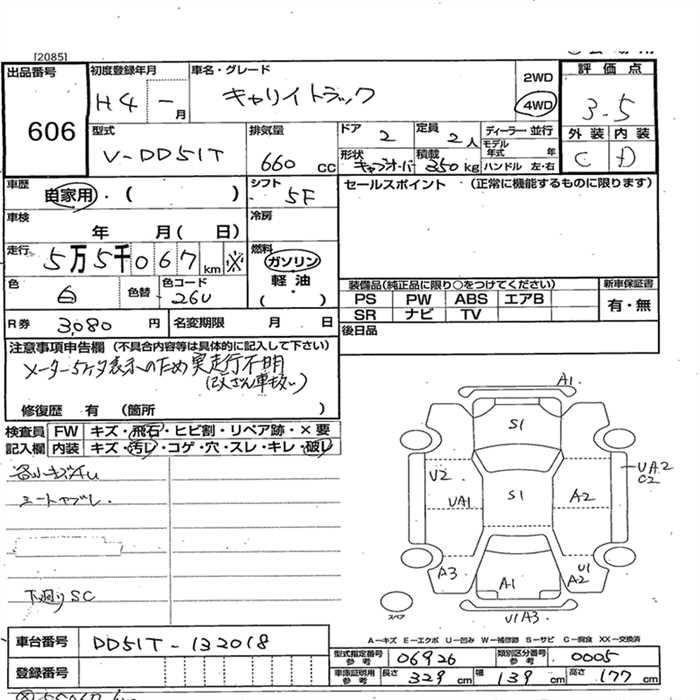 [2085]
出品番号
606
初度登録年月
H4 - 月
車名・グレード
キャリイトラック
2WD
4WD
評価点
3.5
外装 内装
C D
型式
V-DD51T
排気量
660 cc
ドア 2
定員 2人
ディーラー・並行
モデル年式 年
形状 キャブオーバー
積載 350kg
ハンドル 左・右
車歴
自家用・( )
シフト 5F
車検
年 月( 日)
冷房
走行
5万5千067km ※
燃料
ガソリン
軽油
( )
色 白
色替
色コード 26U
R券 3,080 円
名変期限 月 日
セールスポイント (正常に機能するものに限ります)
装備品(純正品に限り○をつけてください)
PS PW ABS エアB
SR ナビ TV
新車保証書
有・無
後日品
注意事項申告欄 (不具合内容等は具体的に記入して下さい)
メーター5ケタ表示のため実走行不明
(改ざん車扱い)
修復歴 有 (箇所 )
検査員 FW キズ・飛石・ヒビ割・リペア跡・×要
記入欄 内装 キズ・汚レ・コゲ・穴・スレ・キレ・破レ
各小キズ凹
シートヤブレ.
下廻りSC
A1
S1
V2
UA1
S1
A2
UA2
C2
A3
A1
U1
A2
スペア
U1A3
A-キズ E-エクボ U-凹み W-補修跡 S-サビ C-腐食 XX-交換済
車台番号 DD51T-132018
登録番号
型式指定番号 参考 06926
類別区分番号 参考 0005
車庫証明用 参考 長さ 329 cm 幅 139 cm 高さ 177 cm